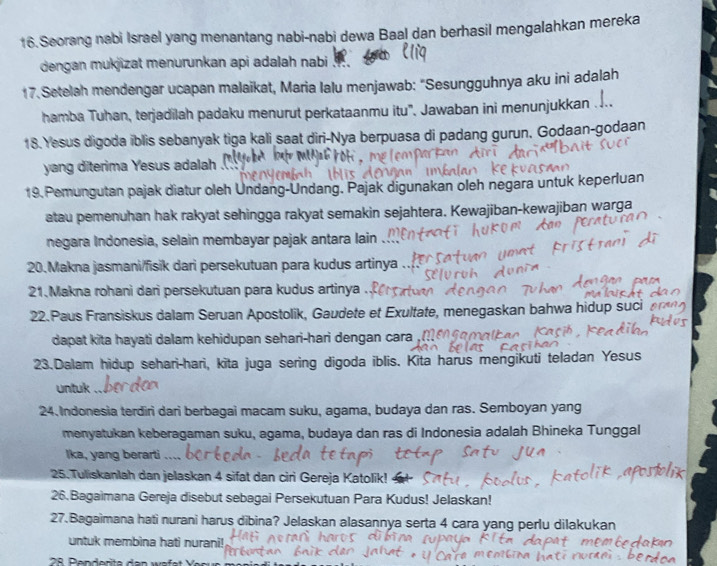 16. Seorang nabi Israel yang menantang nabi-nabi dewa Baal dan berhasil mengalahkan mereka
dengan mukjizat menurunkan api adalah nabi .... Eliq
17. Setelah mendengar ucapan malaikat, Maria lalu menjawab: "Sesungguhnya aku ini adalah
hamba Tuhan, terjadilah padaku menurut perkataanmu itu". Jawaban ini menunjukkan ....
18. Yesus digoda iblis sebanyak tiga kali saat diri-Nya berpuasa di padang gurun. Godaan-godaan
yang diterima Yesus adalah .... batu roti, melemparkan diri dari bait suci
menyembah iblis dengan imbalan kekuasaan
19. Pemungutan pajak diatur oleh Undang-Undang. Pajak digunakan oleh negara untuk keperluan
atau pemenuhan hak rakyat sehingga rakyat semakin sejahtera. Kewajiban-kewajiban warga
negara Indonesia, selain membayar pajak antara lain .... mentaati hukom dan peraturan.
20. Makna jasmani/fisik dari persekutuan para kudus artinya .... Persatuan umat kristiani di
seluruh dunia
21. Makna rohani dari persekutuan para kudus artinya .. Persatuan dengan Tuhan dengan para
malaikat dan
22. Paus Fransiskus dalam Seruan Apostolik, Gaudete et Exultate, menegaskan bahwa hidup suci orang
kudus
dapat kita hayati dalam kehidupan sehari-hari dengan cara .... mengamalkan kasih, keadilan
dan belas kasihan
23. Dalam hidup sehari-hari, kita juga sering digoda iblis. Kita harus mengikuti teladan Yesus
untuk ... berdoa
24. Indonesia terdiri dari berbagai macam suku, agama, budaya dan ras. Semboyan yang
menyatukan keberagaman suku, agama, budaya dan ras di Indonesia adalah Bhineka Tunggal
Ika, yang berarti .... berbeda-beda tetapi tetap satu jua.
25. Tuliskanlah dan jelaskan 4 sifat dan ciri Gereja Katolik! Satu, kudus, katolik, apostolik
26. Bagaimana Gereja disebut sebagai Persekutuan Para Kudus! Jelaskan!
27. Bagaimana hati nurani harus dibina? Jelaskan alasannya serta 4 cara yang perlu dilakukan
untuk membina hati nurani! Hati norani harus dibina supaya kita dapat membedakan
Perbuatan baik dan jahat. 4 cara membina hati nurani: berdoa
28. Penderita dan wafat Yesus